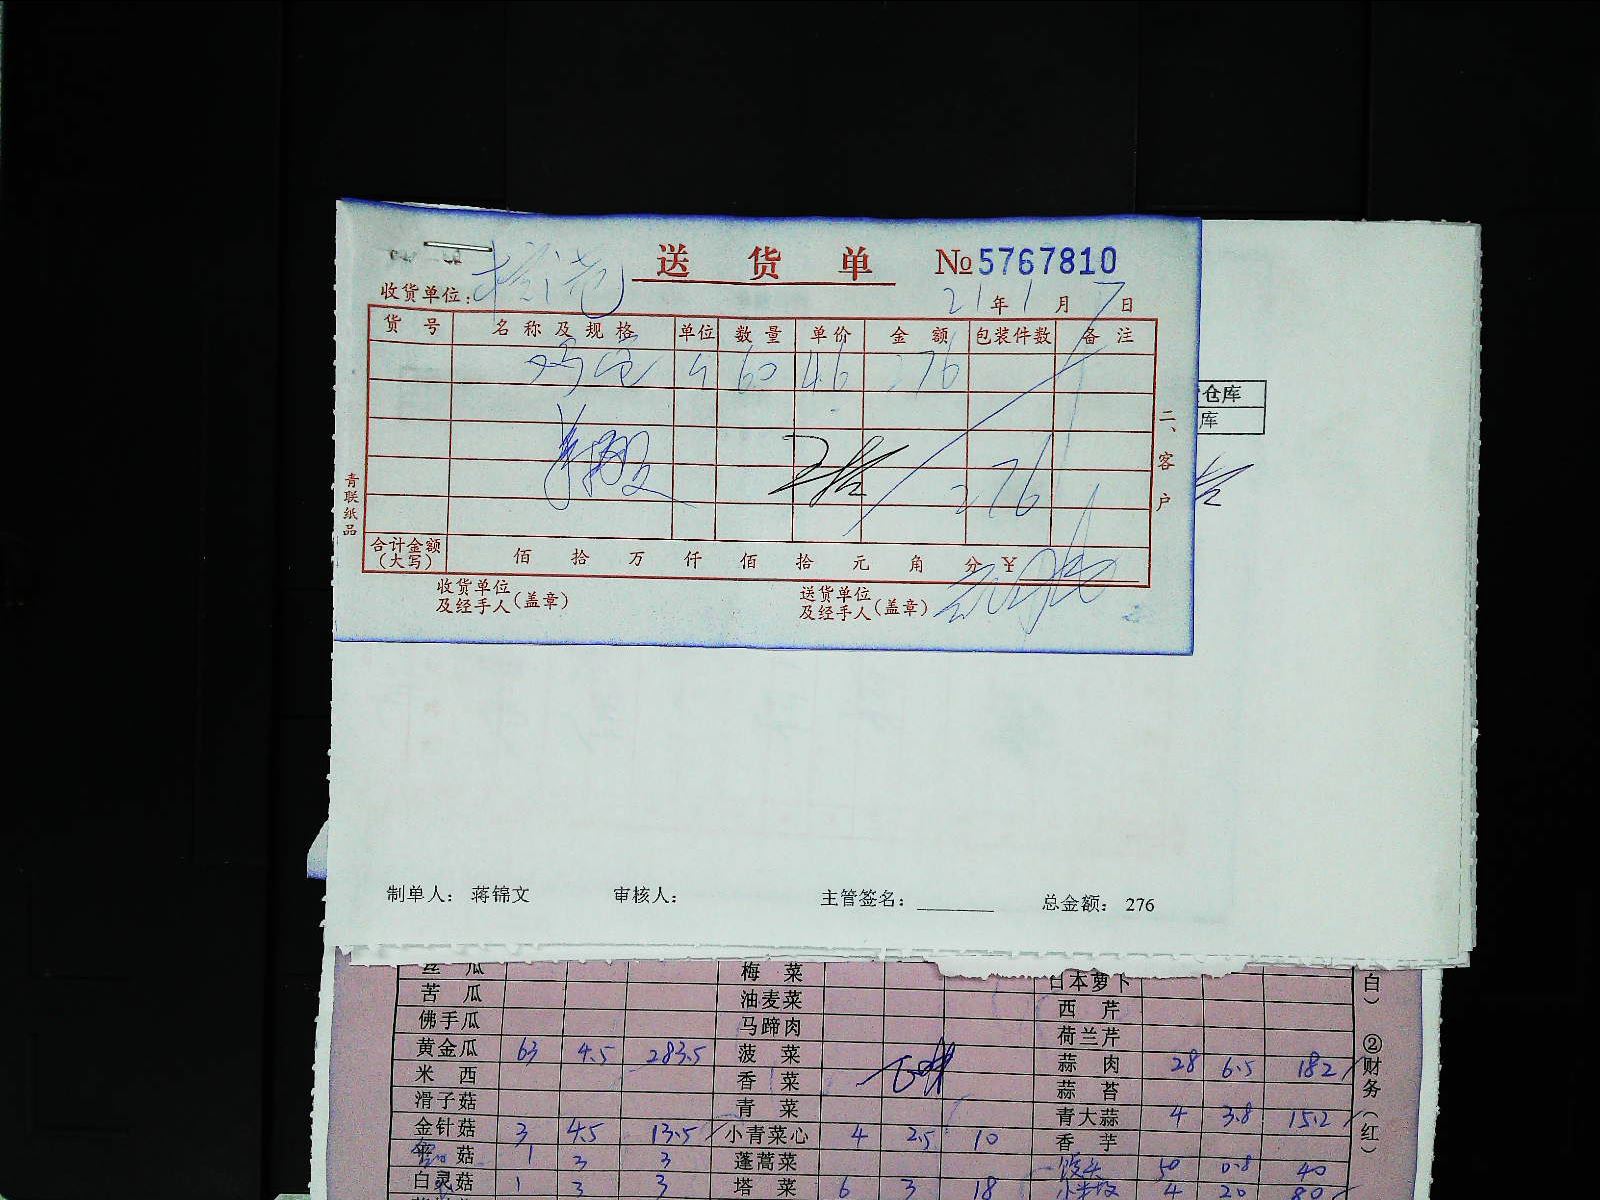 送货单 №5767810
收货单位:
21年1月7日
货号 名称及规格 单位 数量 单价 金额 包装件数 备注
60 4.6 276
276
合计金额(大写) 佰 拾 万 仟 佰 拾 元 角 分 ¥
收货单位及经手人(盖章) 送货单位及经手人(盖章)
青联纸品
二、客户
仓库
库
制单人： 蒋锦文 审核人： 主管签名：______ 总金额： 276
丝瓜 梅菜 日本萝卜
苦瓜 油麦菜 西芹
佛手瓜 马蹄肉 荷兰芹
黄金瓜 63 4.5 283.5 菠菜 蒜肉 28 6.5 182
米西 香菜 蒜苔
滑子菇 青菜 青大蒜 4 3.8 15.2
金针菇 3 4.5 13.5 小青菜心 4 2.5 10 香芋
菇 1 3 3 蓬蒿菜 馒头 50 0.8 40
白灵菇 1 3 3 塔菜 6 3 18 4 20 80
白）
②财务（红）